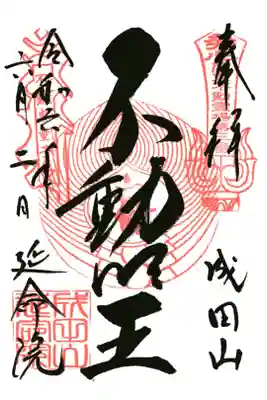 奉拝
成田山
不動明王
令和六年
六月二日
延命院